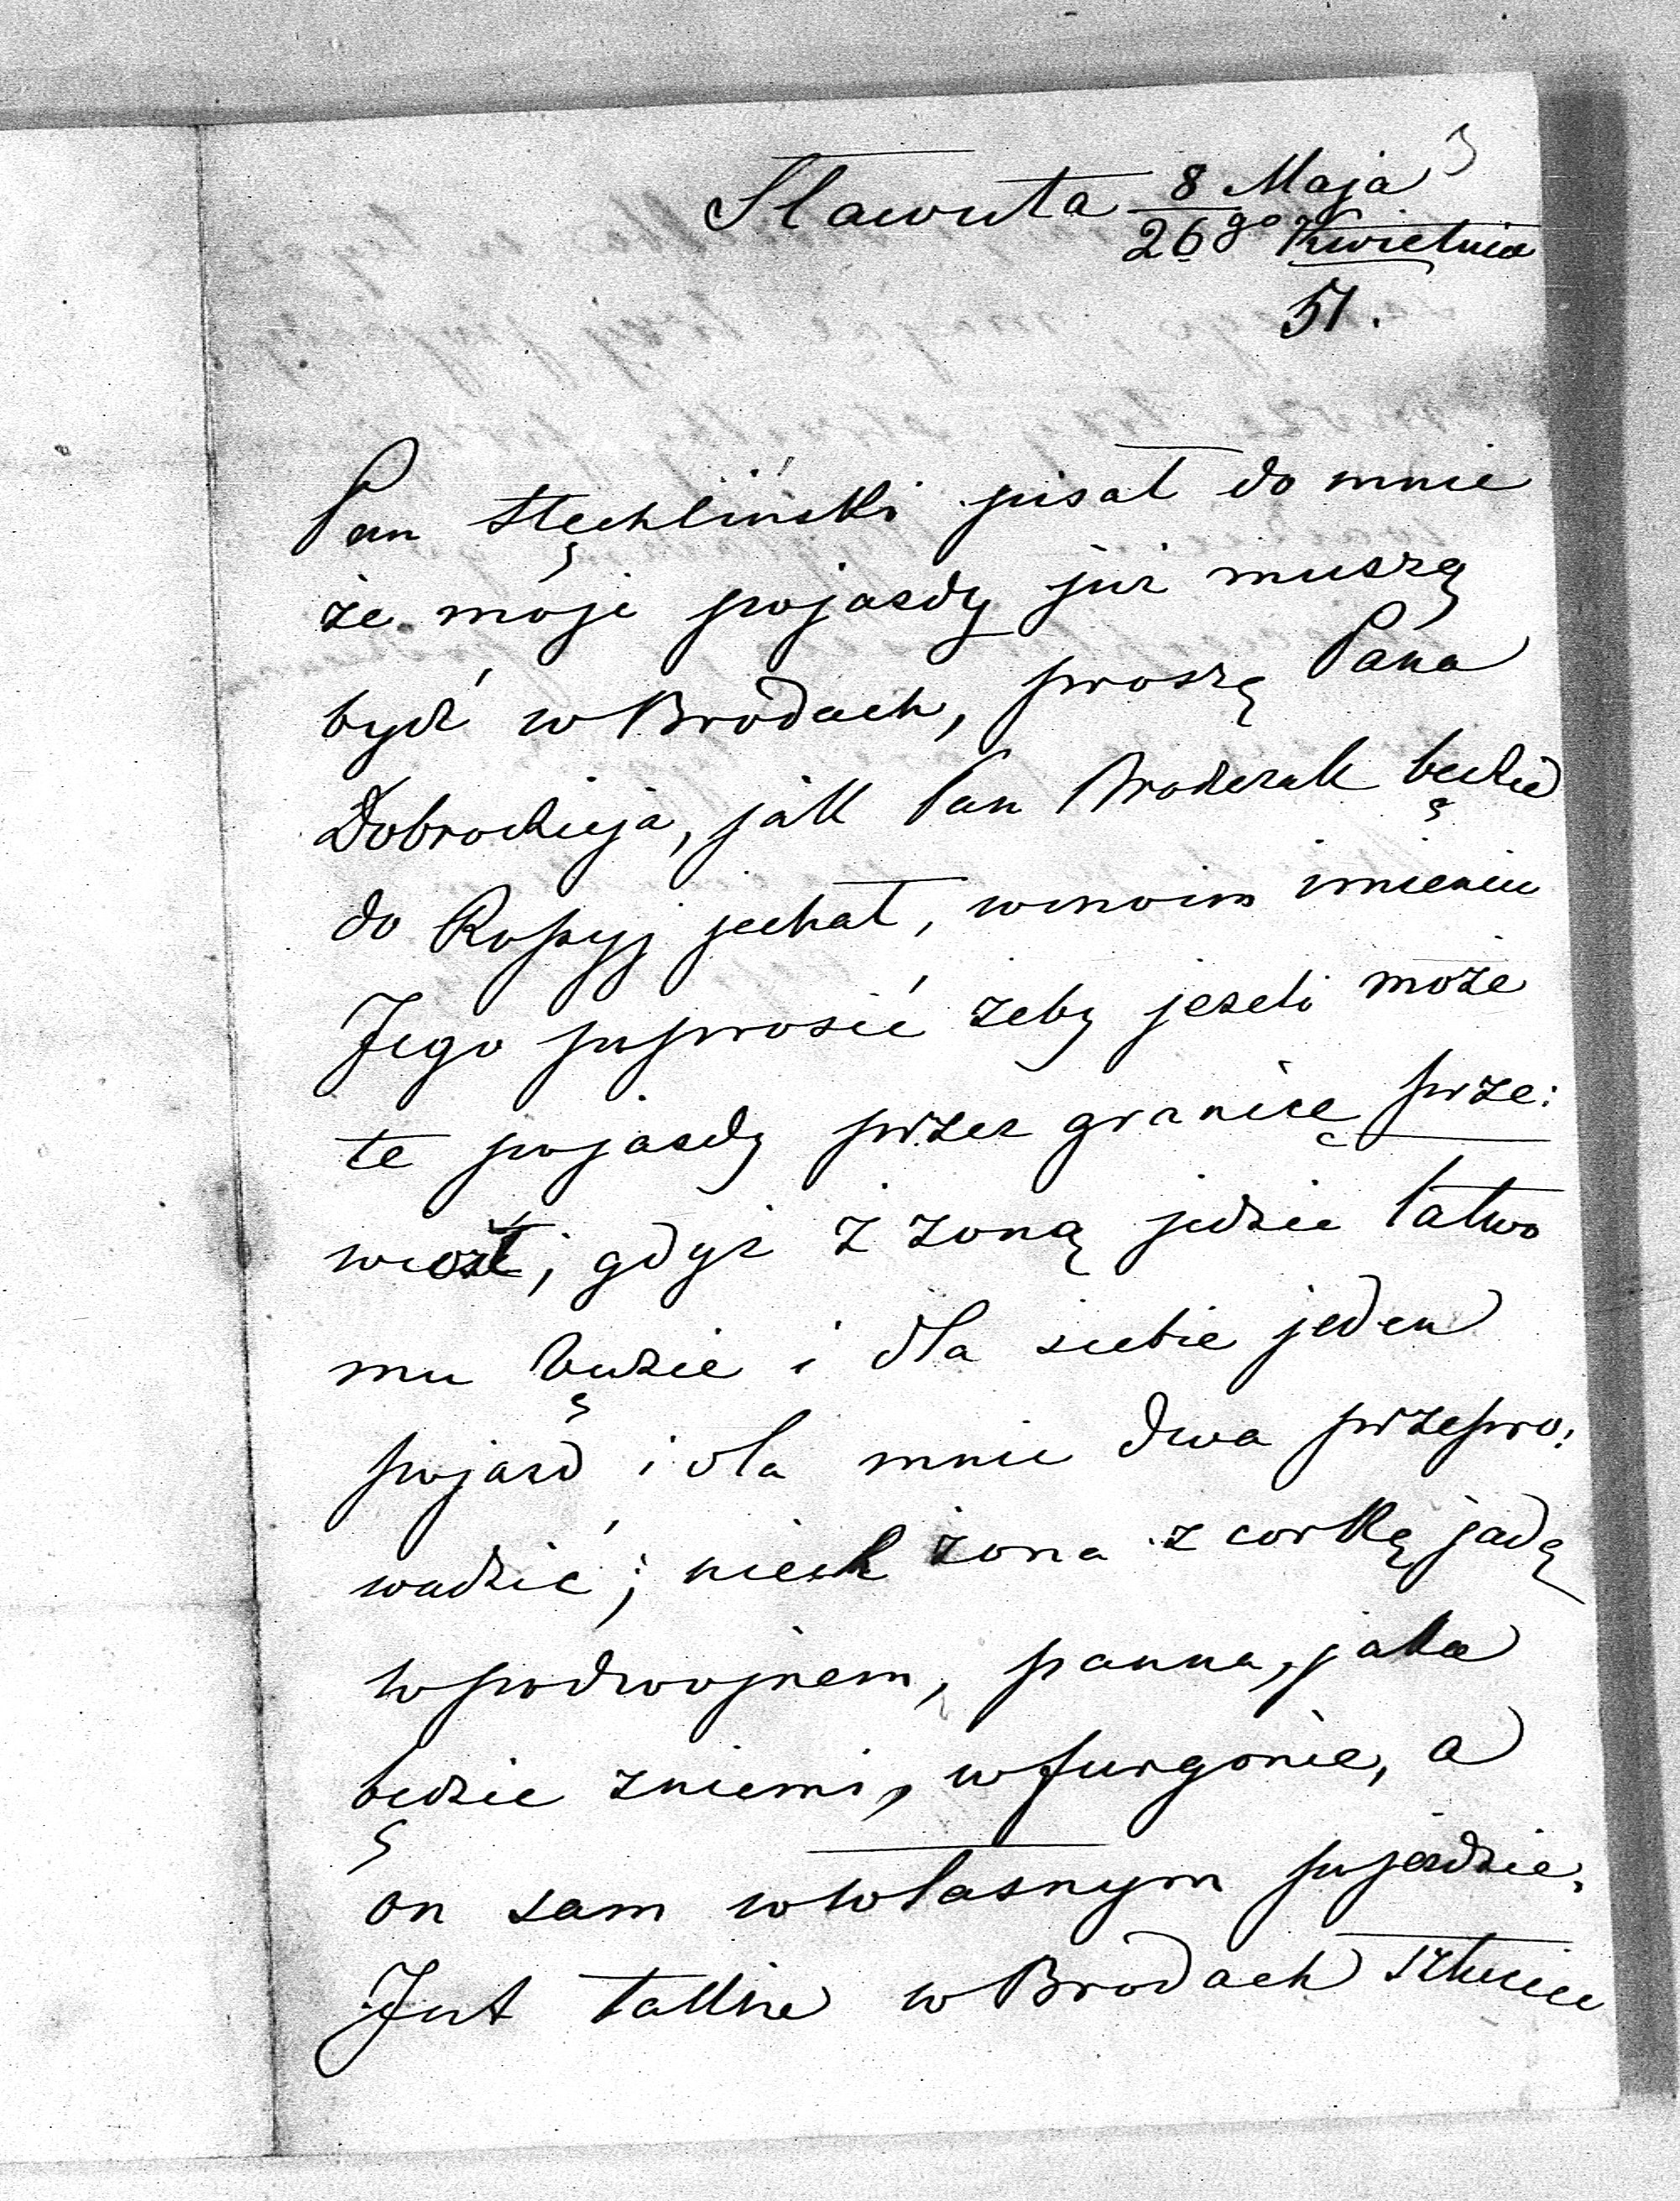 Sławuta 8 Maja
26go Kwietnia
51.
Pan Stęchliński pisał do mnie
że moje pojazdy już muszą
bydź w Brodach, proszę Pana
Dobrodzieja, jak Pan będzie
do Rossyj jechał, w moim imieniu
Jego poprosić żeby jeżeli może
te pojazdy przez granicę prze:
wiózł, gdyż z żoną jedzie łatwo
mu będzie i dla siebie jeden
pojazd i dla mnie dwa przepro:
wadzić; niech żona z corką jadą
w podwojnem, panna, jaka
będzie z niemi, w furgonie, a
on sam w własnym pojeździe.
Jest także w Brodach